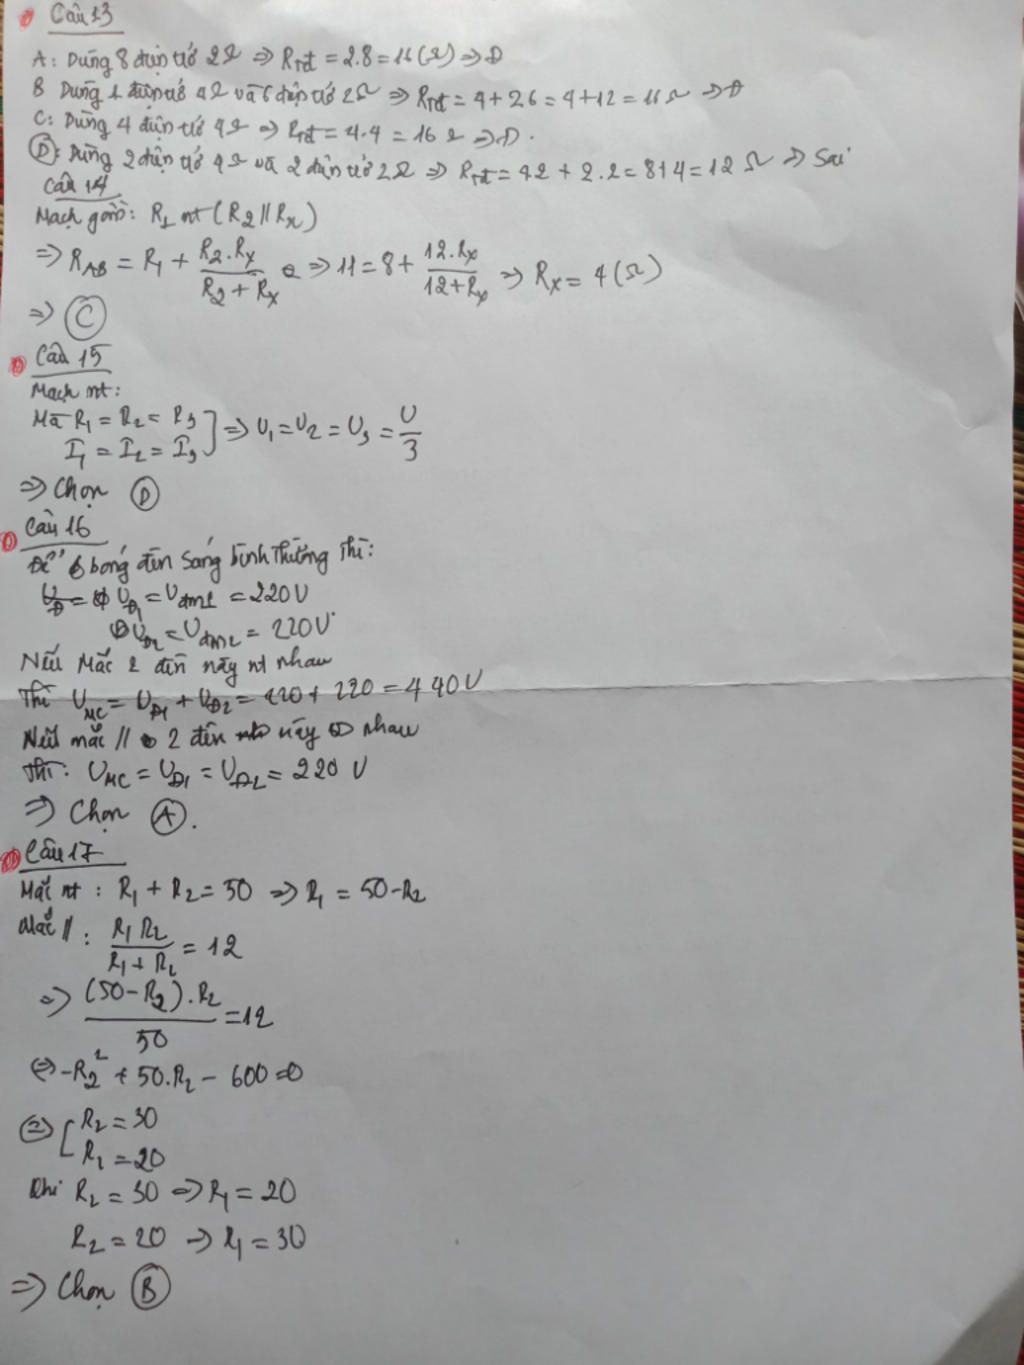 Câu 13
A: Dùng 8 điện trở 2Ω ⇒ Rtđ = 2.8 = 16 (Ω) ⇒ Đ
B Dùng 1 điện trở 4Ω và 6 điện trở 2Ω ⇒ Rtđ = 4 + 2.6 = 4 + 12 = 16 Ω ⇒ Đ
C: Dùng 4 điện trở 4Ω ⇒ Rtđ = 4.4 = 16 Ω ⇒ Đ.
D: Dùng 2 điện trở 4Ω và 2 điện trở 2Ω ⇒ Rtđ = 4.2 + 2.2 = 8 + 4 = 12 Ω ⇒ Sai
Câu 14
Mạch gồm: R1 nt (R2 // Rx)
⇒ RAB = R1 + R2.Rx / (R2 + Rx) ⇒ 11 = 8 + 12.Rx / (12 + Rx) ⇒ Rx = 4 (Ω)
⇒ C
Câu 15
Mạch nt:
Mà R1 = R2 = R3
I1 = I2 = I3 ] ⇒ U1 = U2 = U3 = U/3
⇒ Chọn D
Câu 16
Để bóng đèn sáng bình thường thì:
UĐ1 = Uđm1 = 220V
UĐ2 = Uđm2 = 220V
Nếu mắc 2 đèn này nt nhau
Thì UMC = UĐ1 + UĐ2 = 220 + 220 = 440V
Nếu mắc // 2 đèn này nhau
Thì: UMC = UĐ1 = UĐ2 = 220 V
⇒ Chọn A.
Câu 17
Mắc nt : R1 + R2 = 50 ⇒ R1 = 50 - R2
Mắc // : R1 R2 / (R1 + R2) = 12
⇒ (50 - R2).R2 / 50 = 12
⇔ -R2² + 50.R2 - 600 = 0
⇔ [ R2 = 30
R2 = 20
Khi R2 = 30 ⇒ R1 = 20
R2 = 20 ⇒ R1 = 30
⇒ Chọn B